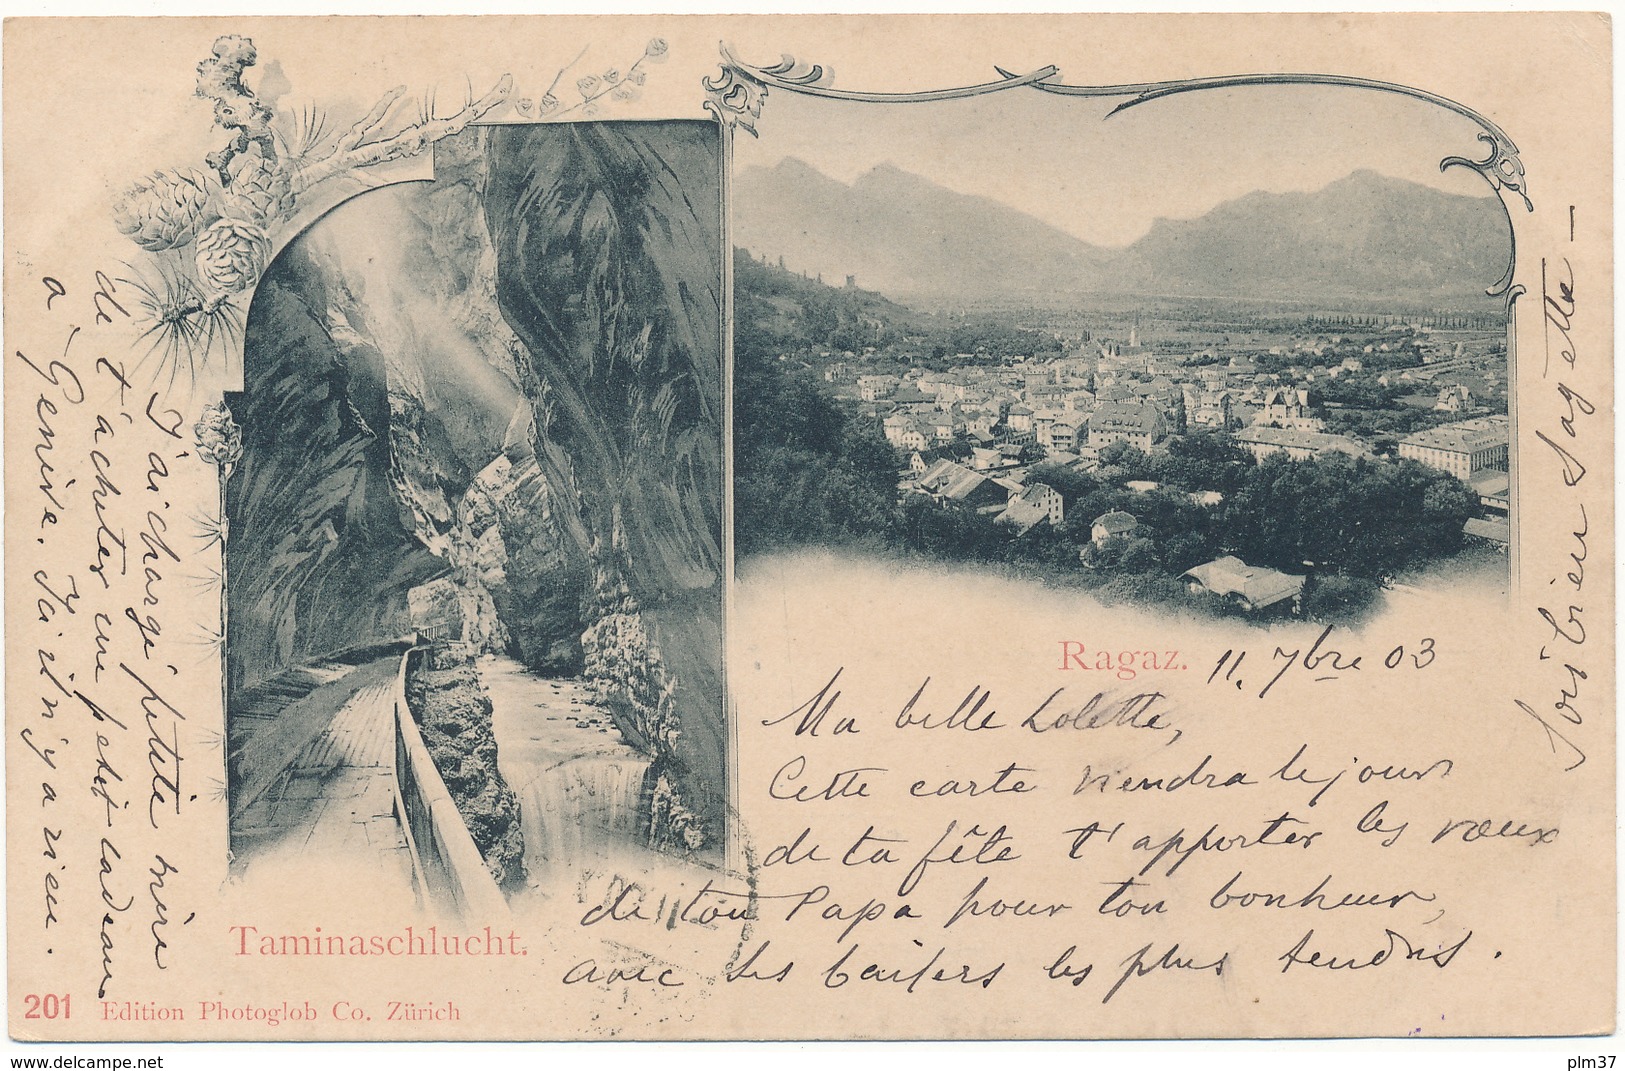 Ragaz. 11. 7bre 03
Ma belle Lolette,
Cette carte viendra le jour
de ta fête t'apporter les vœux
de ton Papa pour ton bonheur,
avec ses baisers les plus tendres.
J'ai chargé petite mère
de t'acheter un petit cadeau
à Genève. Ici il n'y a rien.
Sois bien sagette —
Taminaschlucht.
201 Edition Photoglob Co. Zürich
www.delcampe.net
plm37